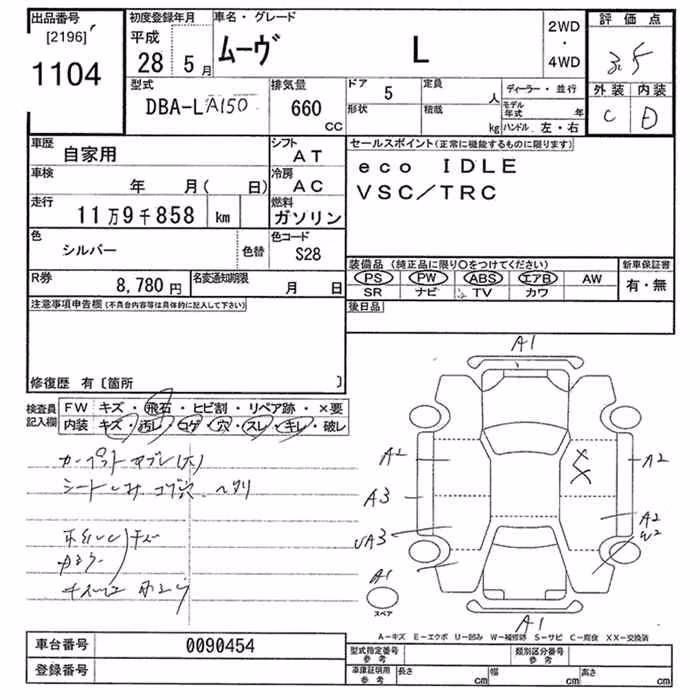 出品番号 初度登録年月 車名・グレード 評価点
[2196] 平成 ムーヴ L 2WD・4WD 3.5
1104 28 5月
型式 排気量 ドア 5 定員 人 ディーラー・並行 外装 内装
DBA-LA150 660 CC 形状 積載 kg モデル年式 年 C D
ハンドル 左・右
車歴 自家用 シフト AT セールスポイント(正常に機能するものに限ります)
車検 年 月( 日) 冷房 AC eco IDLE
走行 11万9千858 km 燃料 ガソリン VSC/TRC
色 シルバー 色替 色コード S28
装備品(純正品に限り○をつけてください) 新車保証書
R券 8,780円 名変通知期限 月 日 PS PW ABS エアB AW 有・無
SR ナビ TV カワ
注意事項申告欄(不具合内容等は具体的に記入して下さい) 後日品
修復歴 有〔箇所 〕
検査員記入欄 FW キズ・飛石・ヒビ割・リペア跡・×要
内装 キズ・汚レ・コゲ・穴・スレ・キレ・破レ
A1
A2 A2
A3
A3 A2
W2
A1
スペア
A1
A-キズ E-エクボ U-凹み W-補修跡 S-サビ C-腐食 XX-交換済
車台番号 0090454 型式指定番号 参考 類別区分番号 参考
登録番号 車庫証明用 参考 長さ cm 幅 cm 高さ cm